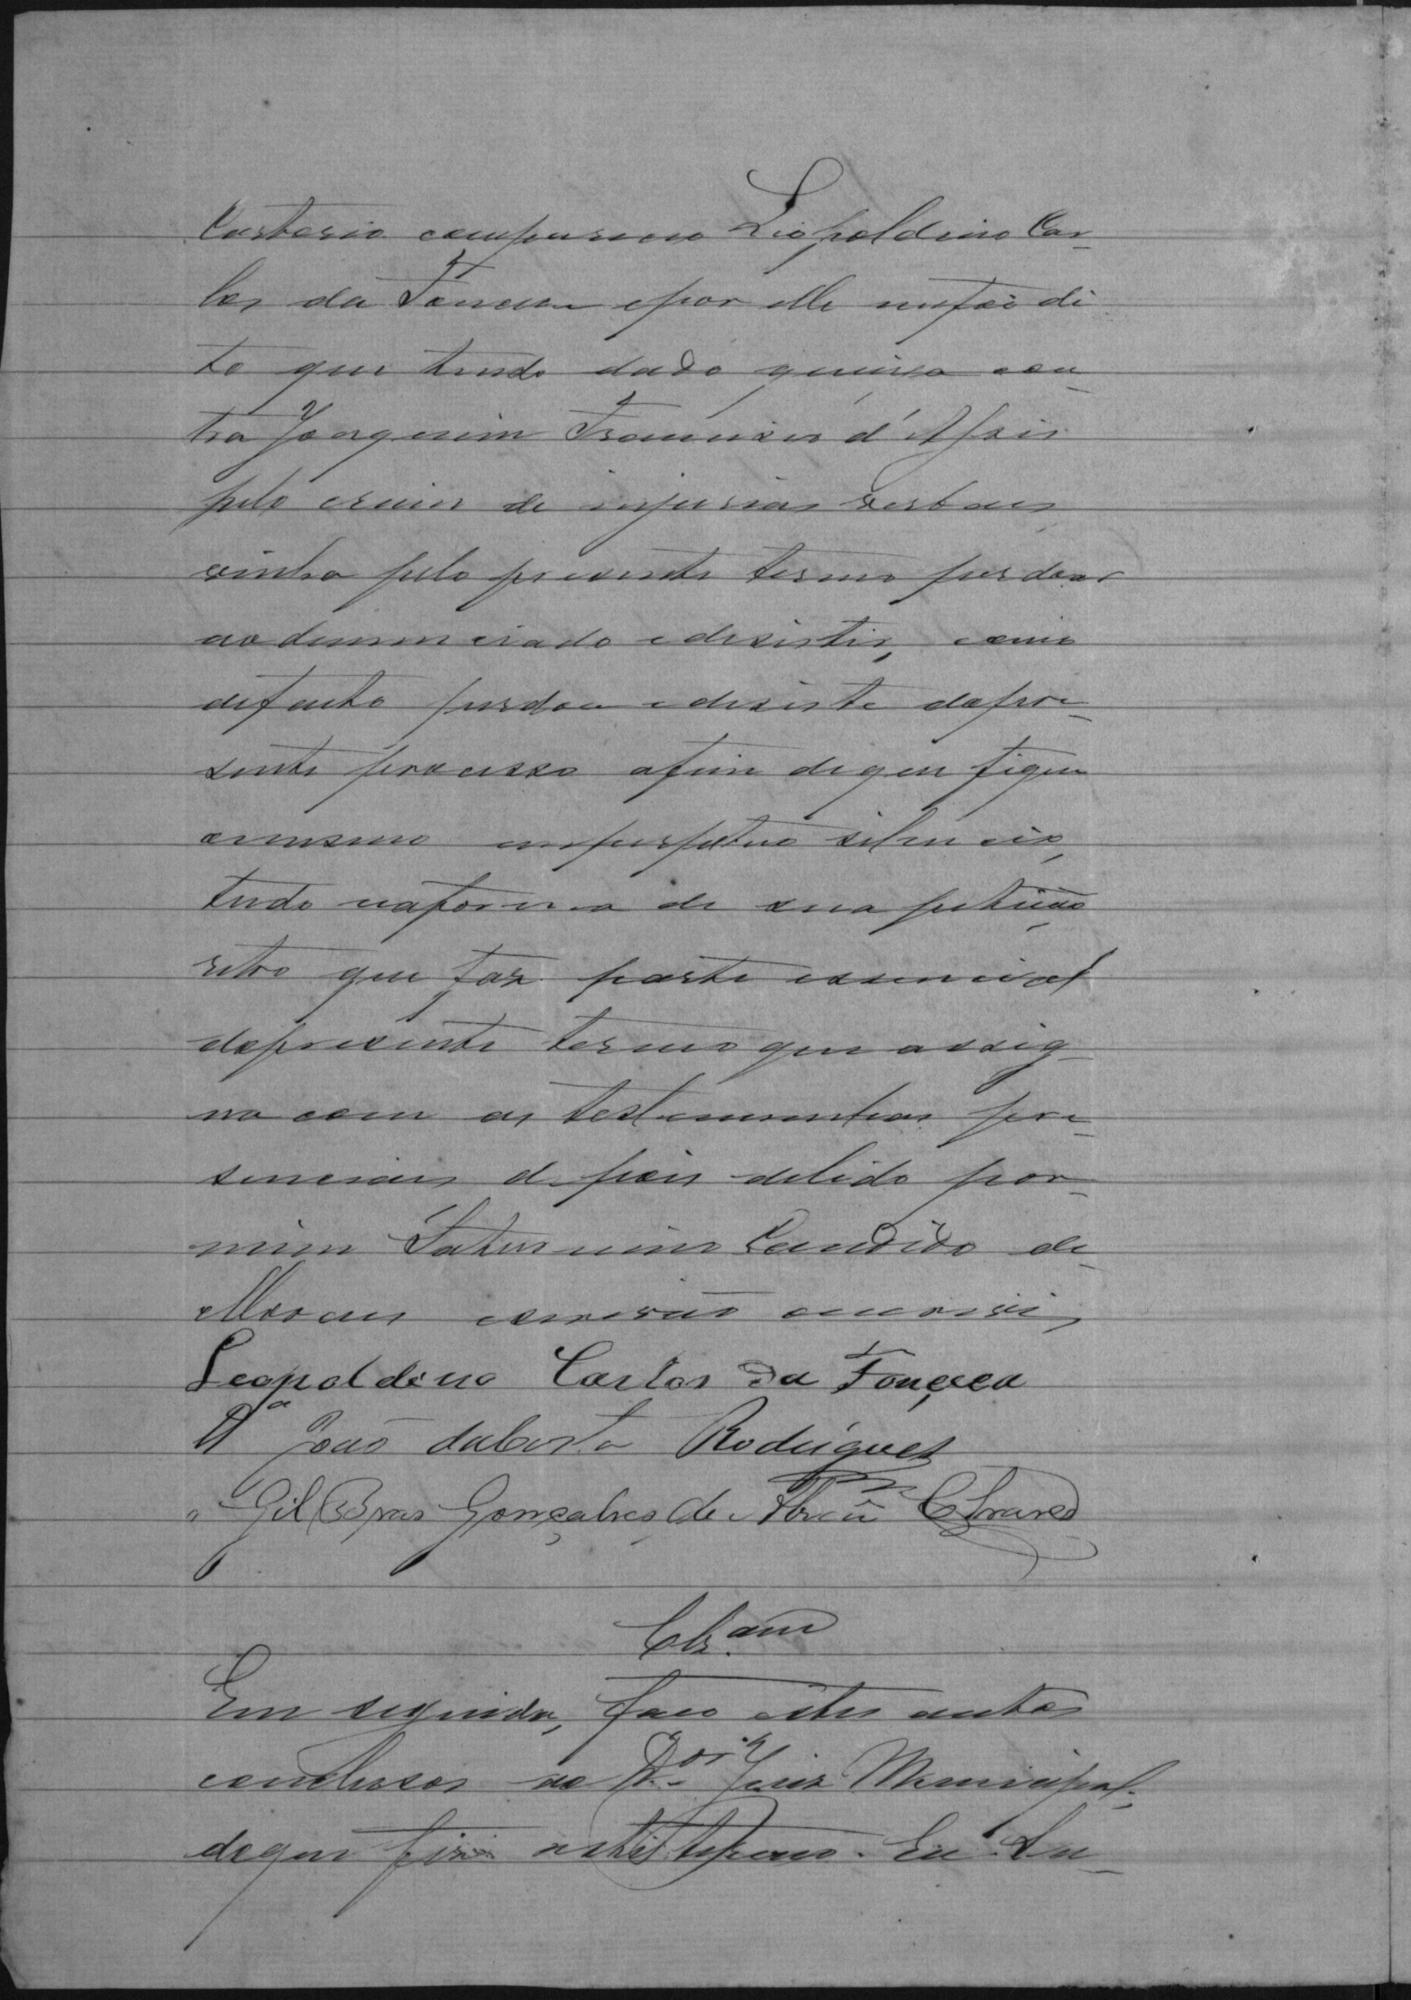 Cartorio compareceo Leopoldino Car-
los da Fonceca e por elle me foi di
to que tendo dado queixa con-
tra Joaquim Francisco d'Assis
pelo crime de injurias verbaes,
vinha pelo presente termo perdoar
ao denunciado e desistir, como
de facto perdoa e desiste do pre-
sente processo afim de que fique
o mesmo em perpetuo silencio,
tudo na forma de sua petição
retro que faz parte essencial
do presente termo que assig-
na com as testemunhas pre-
senciaes depois de lido por
mim Saturnino Candido de
Moraes escrivão que escrevi,
Leopoldino Carlos da Fonçeca
João da Costa Rodrigues
Gil Bras Gonçalves de Abreu
Clz.am
Em seguida, faco estes autos
conclusos ao D.or Juiz Municipal;
do que fiz este termo. Eu Sa-